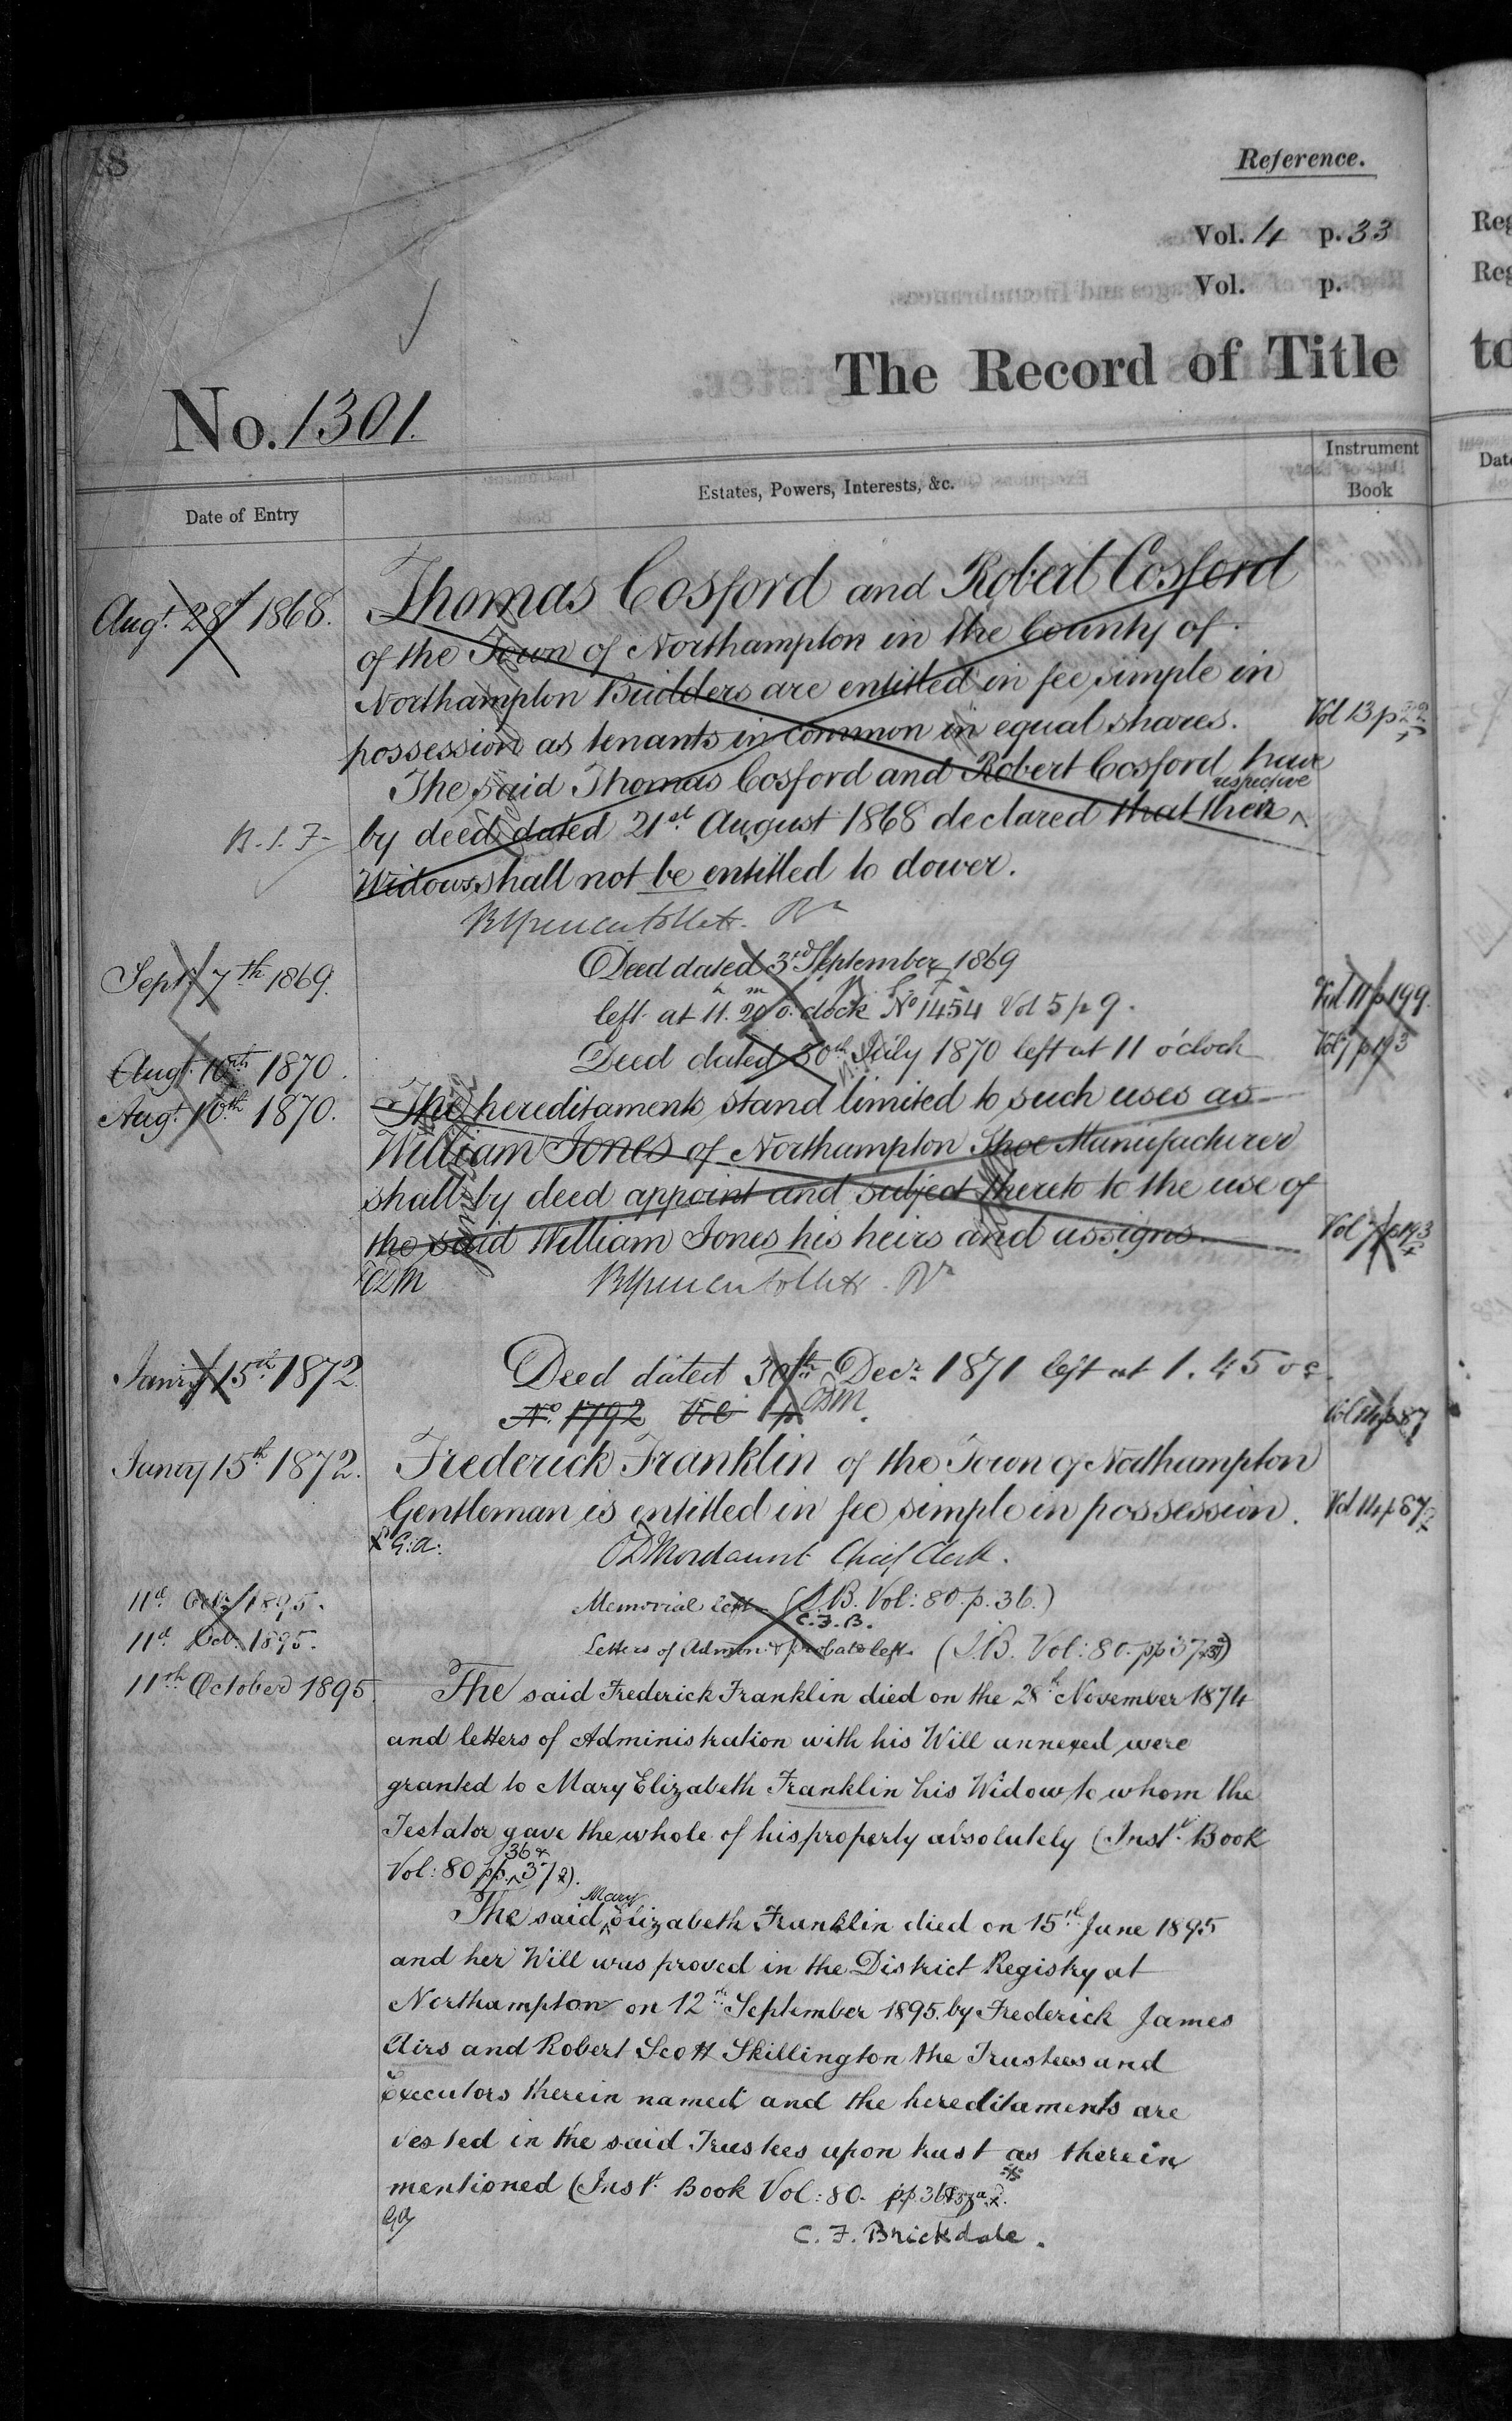 Reference.
Vol. 4 p. 33
Vol. p.
The Record of Title
No. 1301.
Date of Entry
Estates, Powers, Interests, &c.
Instrument Book
Augt. 28th 1868. Thomas Cosford and Robert Cosford
of the Town of Northampton in the County of
Northampton Builders are entitled in fee simple in
possession as tenants in common in equal shares. Vol 13 p 22
The said Thomas Cosford and Robert Cosford have
by deed dated 21st August 1868 declared that their respective
Widows shall not be entitled to dower.
Sept. 7th 1869. Deed dated 3rd September 1869
left at 11h. 20m o'clock No 1454 Vol 5 p 9. Vol 11 p 199.
Augt. 10th 1870. Deed dated 30th July 1870 left at 11 o'clock Vol 7 p 193
Augt. 10th 1870. The hereditaments stand limited to such uses as
William Jones of Northampton Shoe Manufacturer
shall by deed appoint and subject thereto to the use of
the said William Jones his heirs and assigns. Vol 7 p 193
ODM
Janry 15th 1872. Deed dated 30th Decr. 1871 left at 1.45 oc.
No. 1792 Vol p ODM. Vol 14 p 87
Janry 15th 1872. Frederick Franklin of the Town of Northampton
Gentleman is entitled in fee simple in possession. Vol 14 p 87
G.A. ODMordaunt Chief Clerk.
11th Octr. 1895. Memorial left (I.B. Vol: 80. p. 36.)
C.F.B.
11th Oct. 1895. Letters of Admon: & probate left. (I.B. Vol: 80. pp 37
11th October 1895. The said Frederick Franklin died on the 28th November 1874
and letters of Administration with his Will annexed were
granted to Mary Elizabeth Franklin his Widow to whom the
Testator gave the whole of his property absolutely (Inst. Book
Vol: 80 pp. 36 & 37).
The said Mary Elizabeth Franklin died on 15th June 1895
and her Will was proved in the District Registry at
Northampton on 12th September 1895. by Frederick James
Airs and Robert Scott Skillington the Trustees and
Executors therein named and the hereditaments are
vested in the said Trustees upon trust as therein
mentioned (Inst. Book Vol: 80. pp 36
GA
C. F. Brickdale.